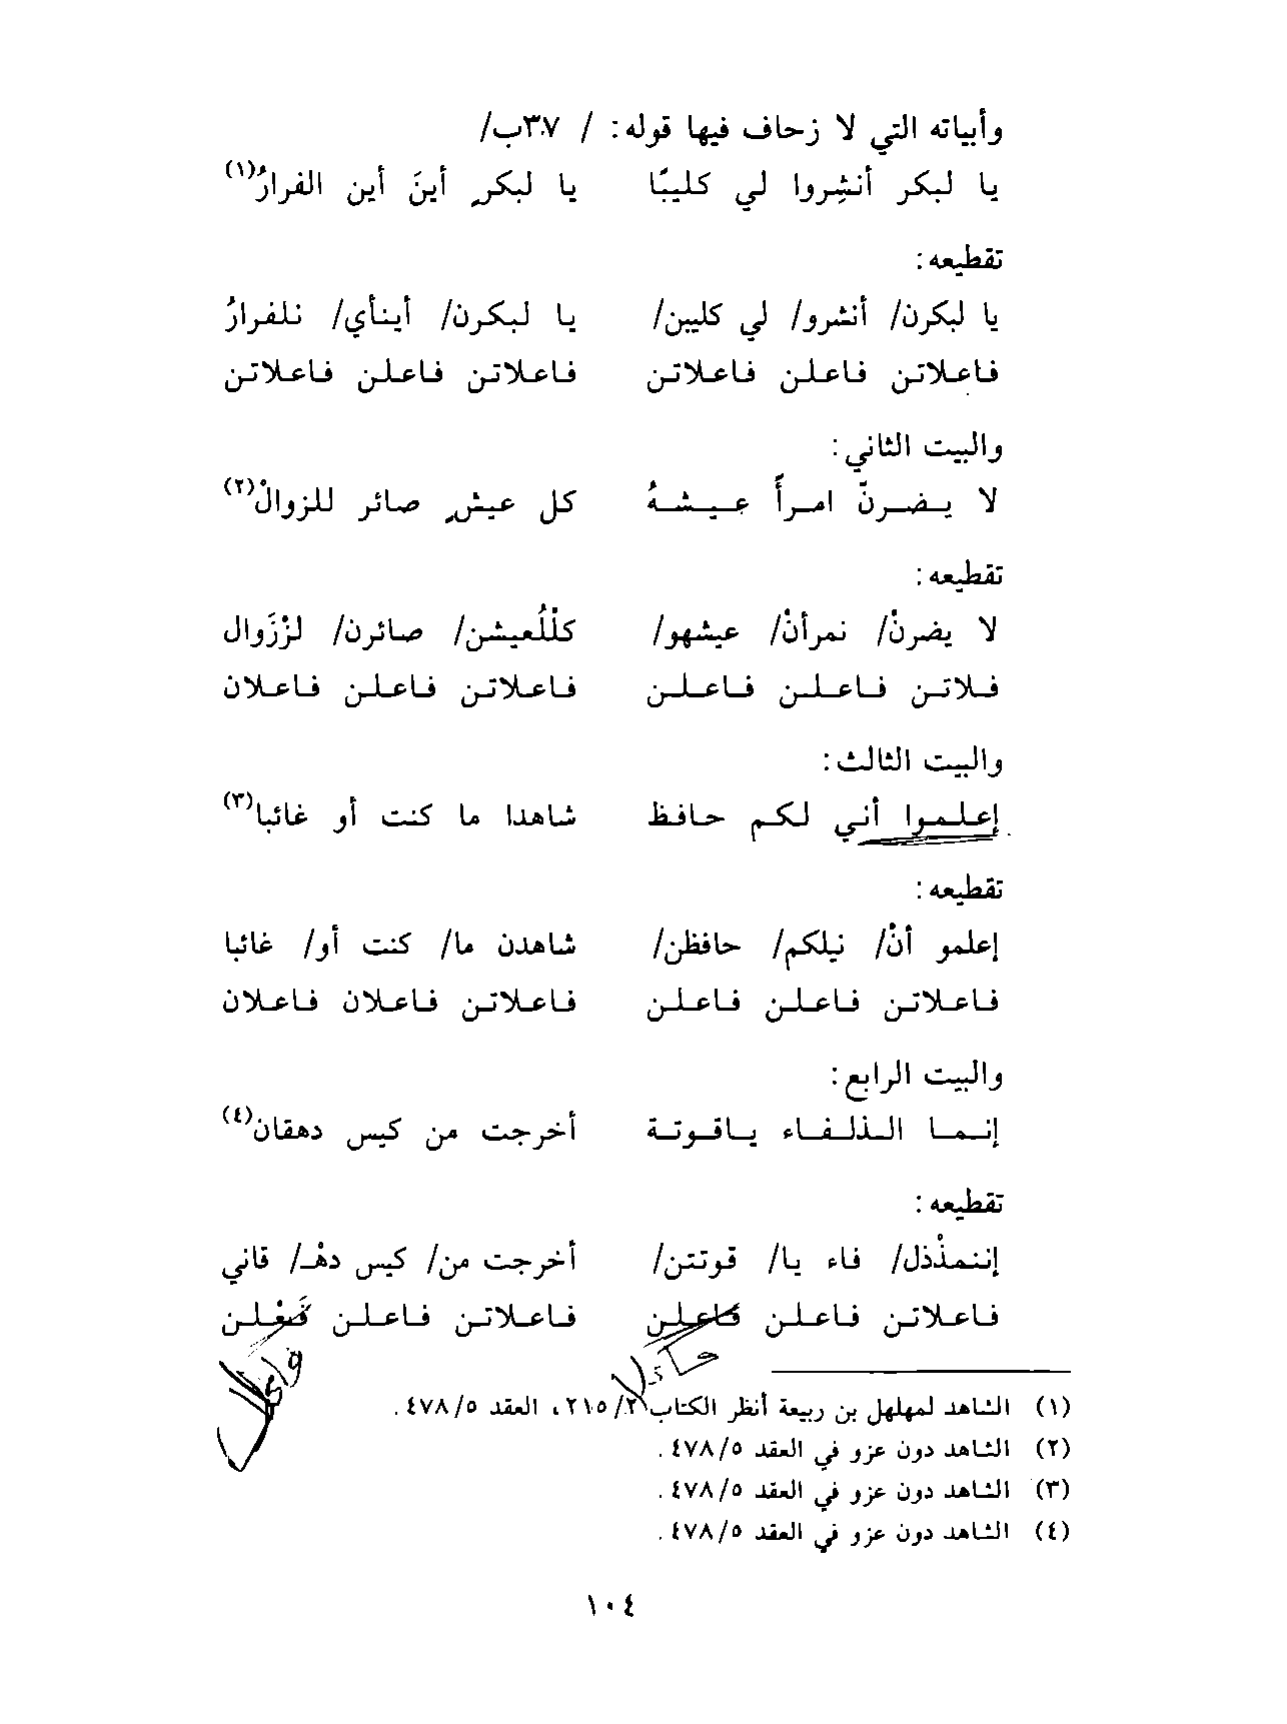 وأبياته التي لا زحاف فيها قوله: / ٣٧ب/
يا لبكر أنشِروا لي كليبًا يا لبكرٍ أينَ أين الفرارُ(١)
تقطيعه:
يا لبكرن/ أنشرو/ لي كليبن/ يا لبكرن/ أينأي/ نلفرارُ
فاعلاتن فاعلن فاعلاتن فاعلاتن فاعلن فاعلاتن
والبيت الثاني:
لا يضرنّ امرأً عيشهُ كل عيشٍ صائر للزوالْ(٢)
تقطيعه:
لا يضرنْ/ نمرأنْ/ عيشهو/ كلْلُعيشن/ صائرن/ لزْزَوال
فلاتن فاعلن فاعلن فاعلاتن فاعلن فاعلان
والبيت الثالث:
إعلموا أني لكم حافظ شاهدا ما كنت أو غائبا(٣)
تقطيعه:
إعلمو أنْ/ نيلكم/ حافظن/ شاهدن ما/ كنت أو/ غائبا
فاعلاتن فاعلن فاعلن فاعلاتن فاعلان فاعلان
والبيت الرابع:
إنما الذلفاء ياقوتة أخرجت من كيس دهقان(٤)
تقطيعه:
إننمذْذل/ فاء يا/ قوتتن/ أخرجت من/ كيس دهْـ/ قاني
فاعلاتن فاعلن فاعلن فاعلاتن فاعلن فَعْلن
(١) الشاهد لمهلهل بن ربيعة أنظر الكتاب ٢/ ٢١٥، العقد ٥/ ٤٧٨.
(٢) الشاهد دون عزو في العقد ٥/ ٤٧٨.
(٣) الشاهد دون عزو في العقد ٥/ ٤٧٨.
(٤) الشاهد دون عزو في العقد ٥/ ٤٧٨.
١٠٤